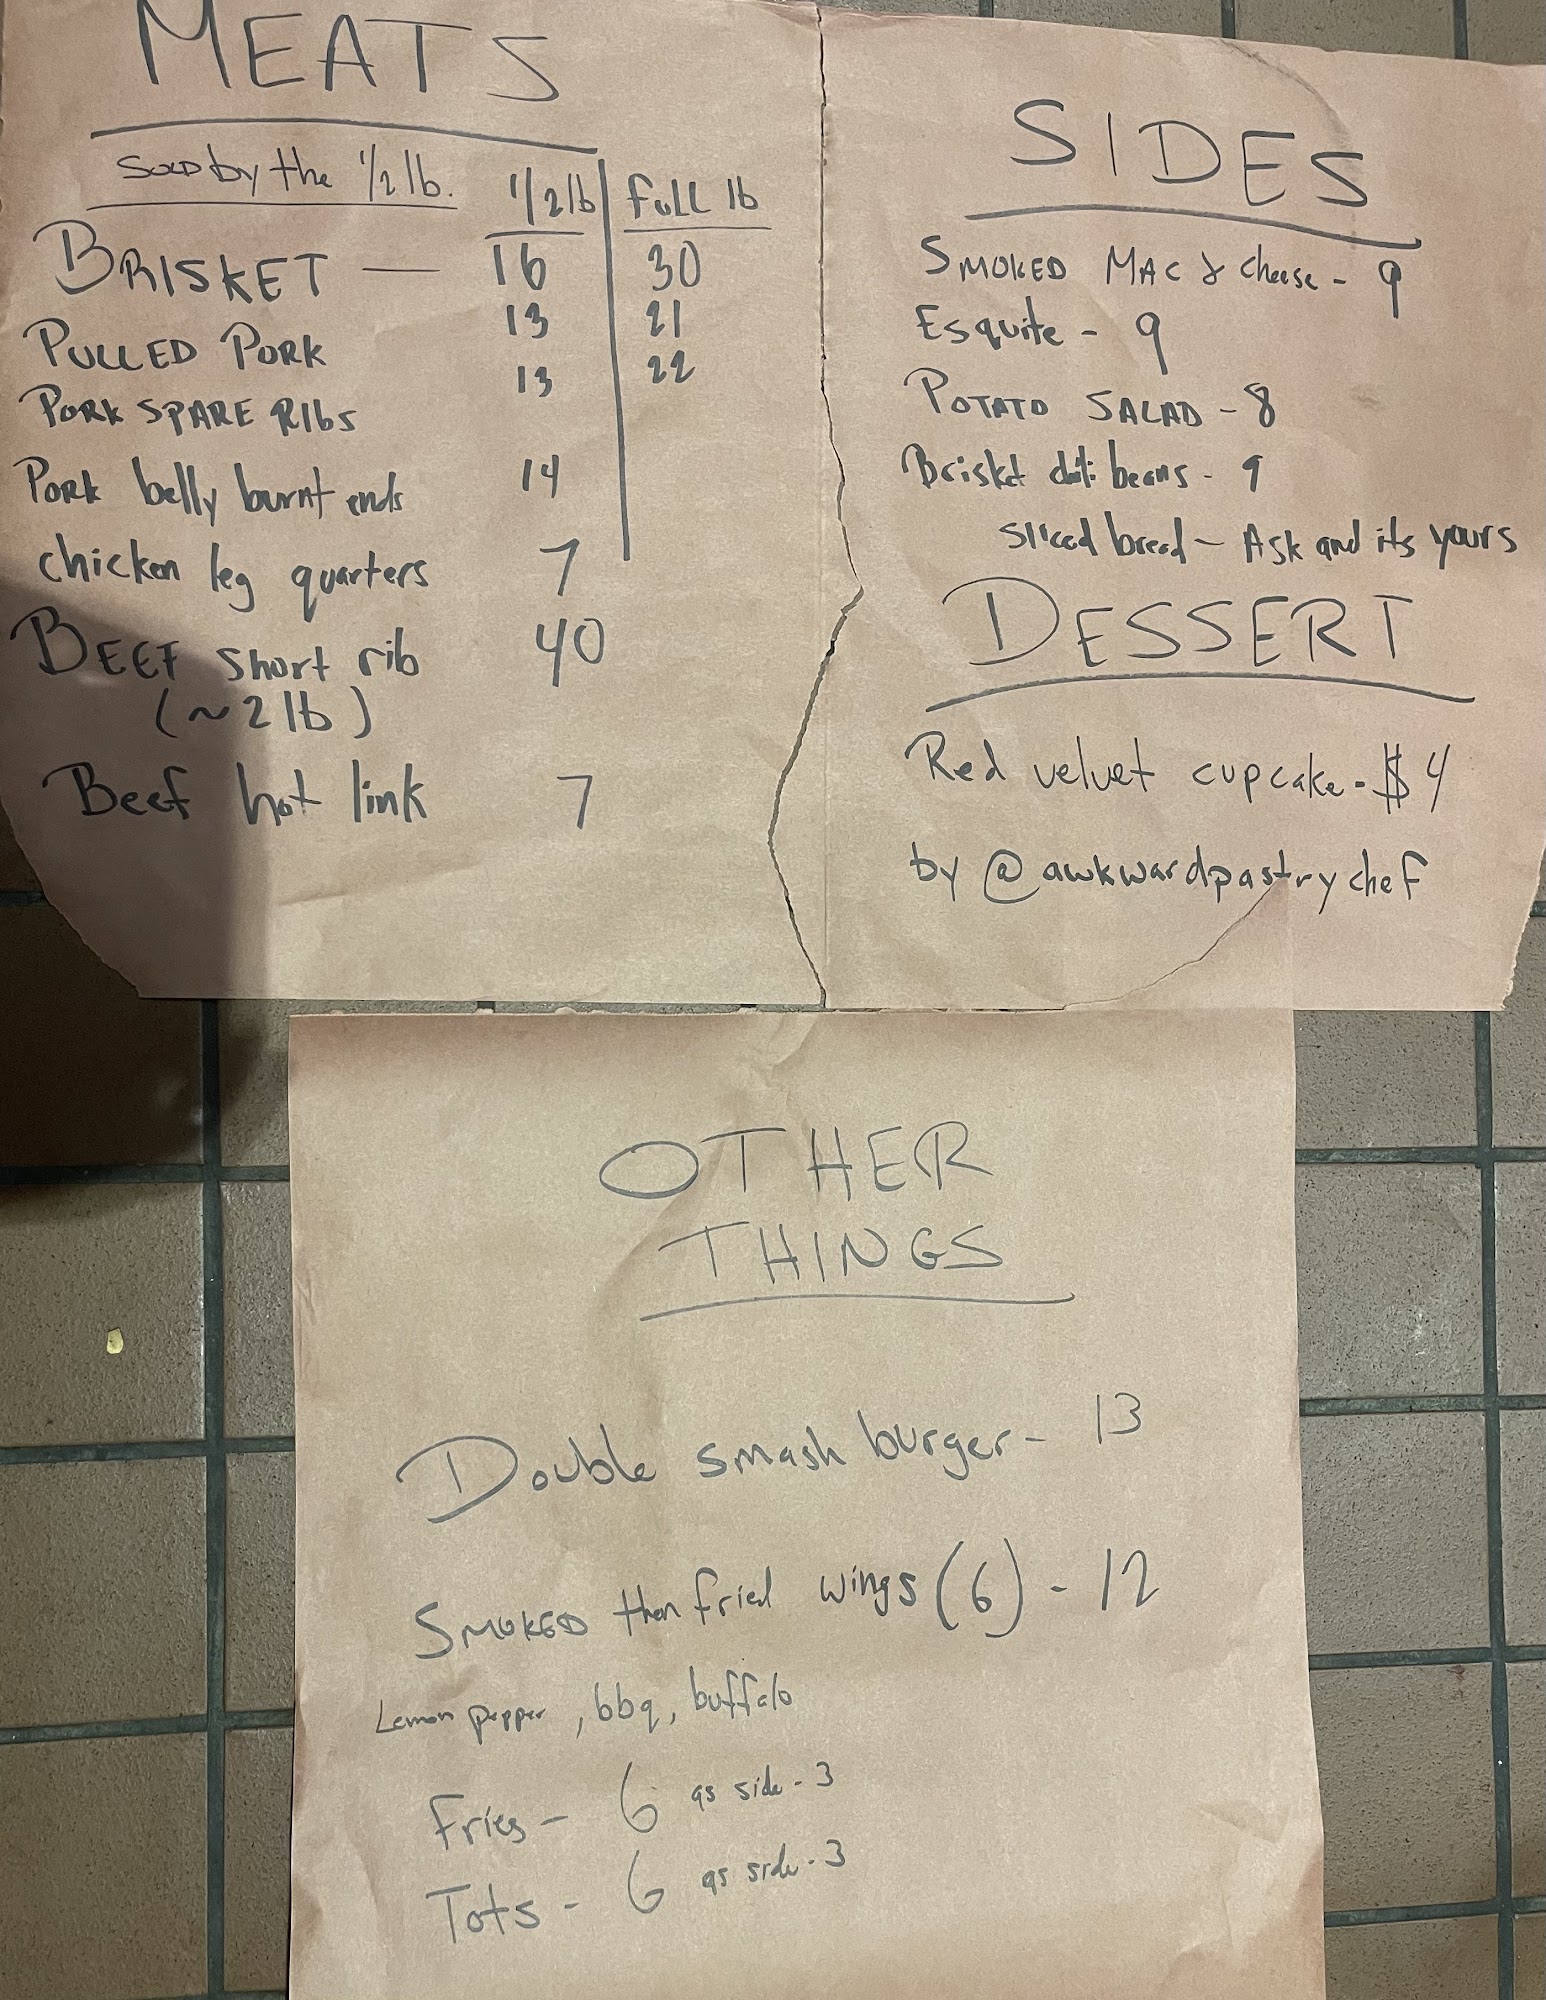 MEATS
SOLD by the 1/2 lb. 1/2 lb Full lb
BRISKET — 16 30
PULLED PORK 13 21
PORK SPARE RIBS 13 22
Pork belly burnt ends 14
chicken leg quarters 7
BEEF short rib 40
(~2 lb)
Beef hot link 7
SIDES
SMOKED MAC & cheese - 9
Esquite - 9
POTATO SALAD - 8
Brisket beans - 9
sliced bread - Ask and its yours
DESSERT
Red velvet cupcake - $4
by @awkwardpastrychef
OTHER
THINGS
Double smash burger - 13
SMOKED then fried wings (6) - 12
Lemon pepper, bbq, buffalo
Fries - 6 as side - 3
Tots - 6 as side - 3